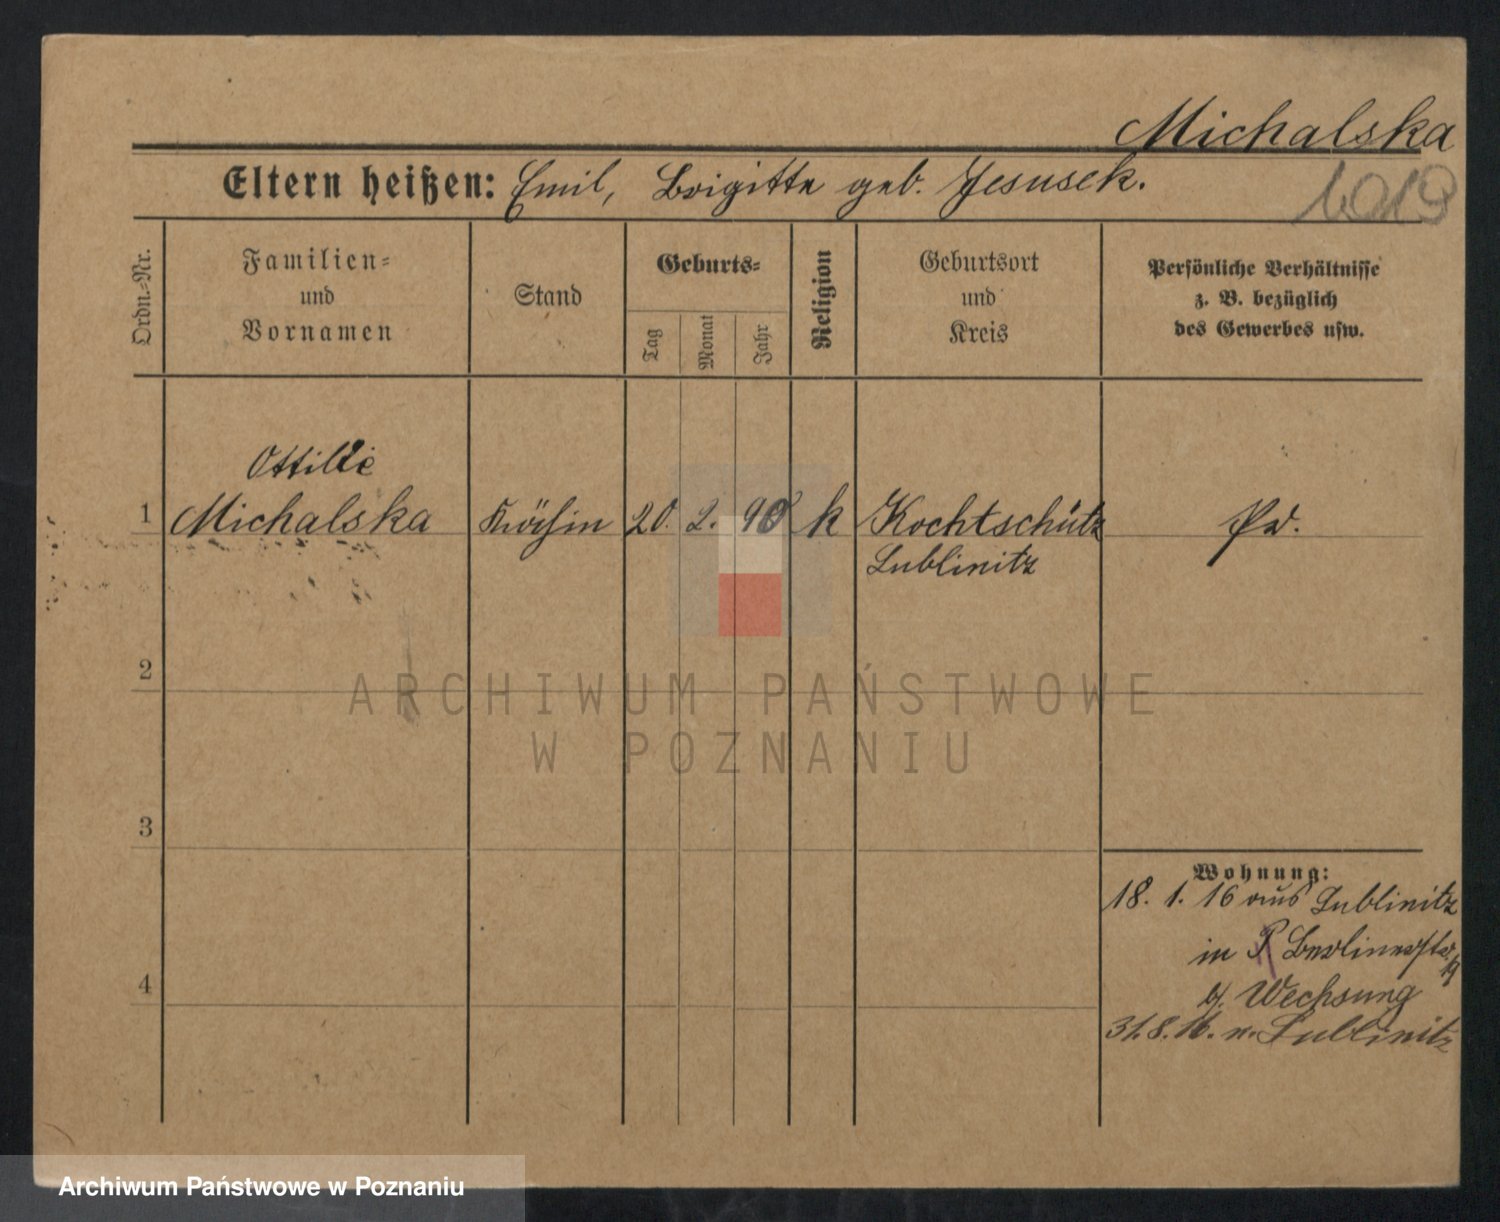 Michalska
Eltern heißen: Emil, Brigitte geb. Jesusek.
1019
Ordn.-Nr.
Familien-
und
Vornamen
Stand
Geburts-
Tag
Monat
Jahr
Religion
Geburtsort
und
Kreis
Persönliche Verhältnisse
z. B. bezüglich
des Gewerbes usw.
Ottilie
1 Michalska Köchin 20. 2. 90 k Kochtschütz Pr.
Lublinitz
2
3
4
Wohnung:
18. 1. 16 aus Lublinitz
in P Berlinerstr. 19
b/. Wechsung
31.8.16. n. Lublinitz
ARCHIWUM PAŃSTWOWE
W POZNANIU
Archiwum Państwowe w Poznaniu